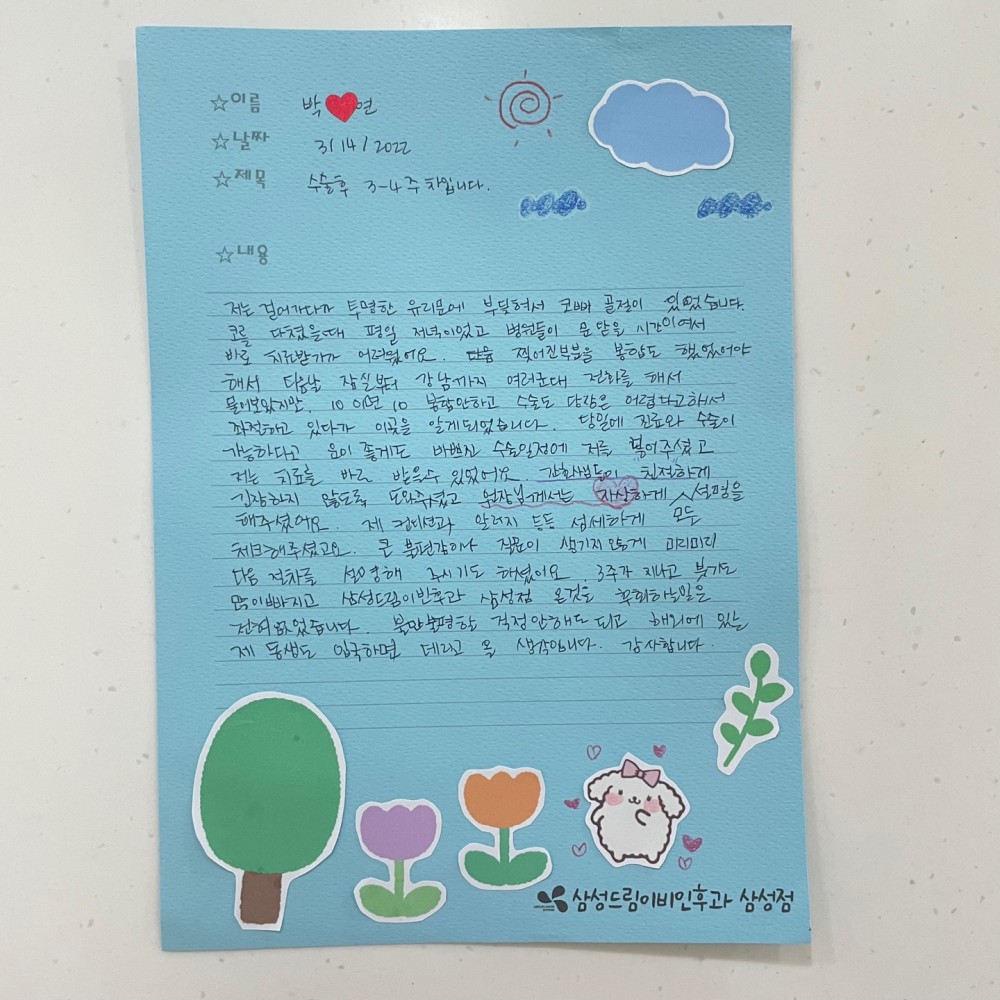 ☆이름 박♥연
☆날짜 3/14/2022
☆제목 수술후 3-4주차입니다.
☆내용
저는 걸어가다가 투명한 유리문에 부딪혀서 코뼈 골절이 있었습니다.
코를 다쳤을때 평일 저녁이었고 병원들이 문닫을 시간이여서
바로 치료받기가 어려웠어요. 다음 찢어진부분을 봉합도 했었어야
해서 다음날 잠실부터 강남까지 여러군대 전화를 해서
물어보았지만, 10이면 10 봉합안하고 수술도 당장은 어렵다고하셔
걱정하고 있다가 이곳을 알게되었습니다. 당일에 진료와 수술이
가능하다고 운이 좋게도 바쁘신 수술일정에 저를 넣어주셨고
저는 치료를 바로 받을수 있었어요. 간호사쌤들이 친절하게
긴장하지 않도록 도와주셨고 원장님께서는 자상하게 설명을
해주셨어요. 제 컨디션과 알러지 등등 섬세하게 모두
체크해주셨고요. 큰 불편감이나 작은이 생기지않게 미리미리
다음 절차를 설명해 주시기도 하셨어요. 3주가 지나고 붓기도
많이빠지고 삼성드림이빈후과 삼성점 온것을 후회하는일은
전혀없었습니다. 불만불평할 걱정안해도 되고 해외에 있는
제 동생도 입국하면 데리고 올 생각입니다. 감사합니다.
삼성드림이비인후과 삼성점